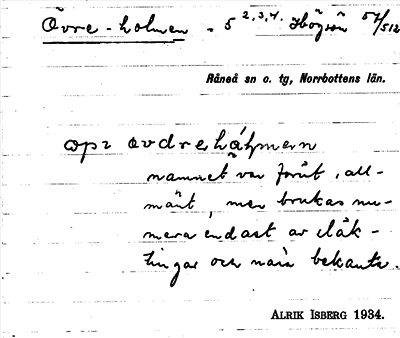 Övre-holmen - 5 2, 3, 4. Högsön 57/512
Råneå sn o. tg, Norrbottens län.
namnet var förut, all-
mänt, men brukas nu-
mera endast av släk-
tingar och nära bekanta.
ALRIK ISBERG 1934.